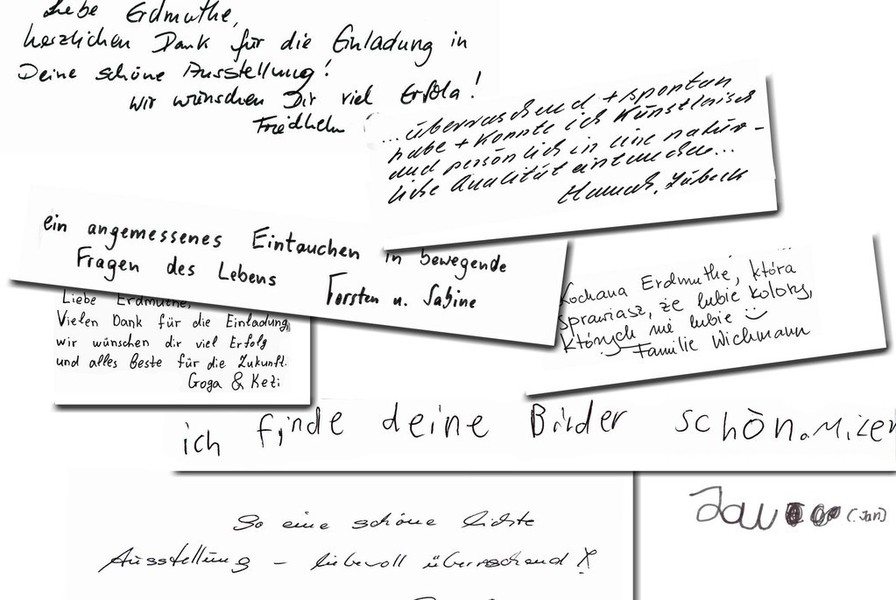 Liebe Erdmuthe,
herzlichen Dank für die Einladung in
Deine schöne Ausstellung!
Wir wünschen Dir viel Erfolg!
Friedhelm
...überraschend + spontan
habe + konnte ich künstlerisch
und persönlich in eine natür-
liche Qualität eintauchen...
Hannah, Lübeck
ein angemessenes Eintauchen in bewegende
Fragen des Lebens
Torsten u. Sabine
Liebe Erdmuthe,
Vielen Dank für die Einladung,
wir wünschen dir viel Erfolg
und alles Beste für die Zukunft.
Goga & Keti
Kochana Erdmuthe, która
sprawiasz, że lubie kolory,
których nie lubie
Familie Wichmann
ich finde deine Bilder schön.
So eine schöne lichte
Ausstellung – liebevoll überraschend
Jan
(Jan)